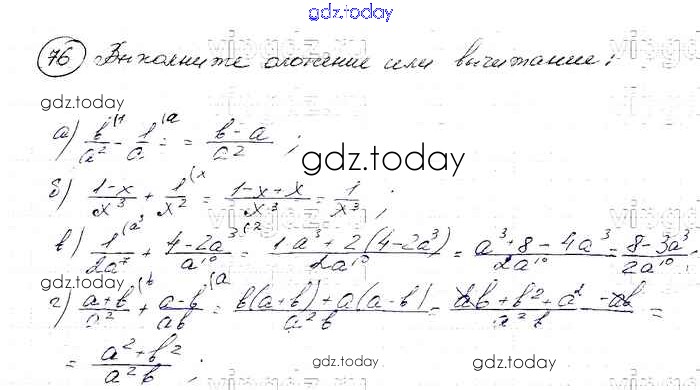 gdz.today
76 Выполните сложение или вычитание:
gdz.today
а) b^(1/a² - 1^(a/a = = b-a/a² ;
gdz.today
б) 1-x/x³ + 1^(x/x² = 1-x+x/x³ = 1/x³ ;
в) 1^(a³/2a⁷ + 4-2a³^(2/a¹⁰ = 1·a³+2(4-2a³)/2a¹⁰ = a³+8-4a³/2a¹⁰ = 8-3a³/2a¹⁰ ;
г) a+b^(b/a² + a-b^(a/ab = b(a+b)+a(a-b)/a²b = ab+b²+a²-ab/a²b =
= a²+b²/a²b ;
gdz.today
gdz.today
gdz.today